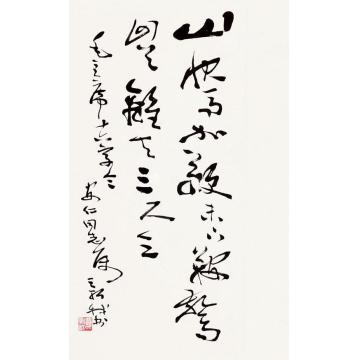 山快马加鞭未下鞍惊
回首离天三尺三
毛主席十六字令
安仁同志属